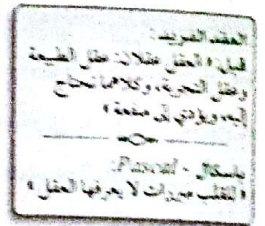 العقد الفريد:
قيل: « العقل عقلان: عقل الطبيعة
وعقل التجربة، وكلاهما نحتاج
إليه ويؤدي إلى منفعة »
باسكال - Pascal:
« للقلب مبررات لا يعرفها العقل »